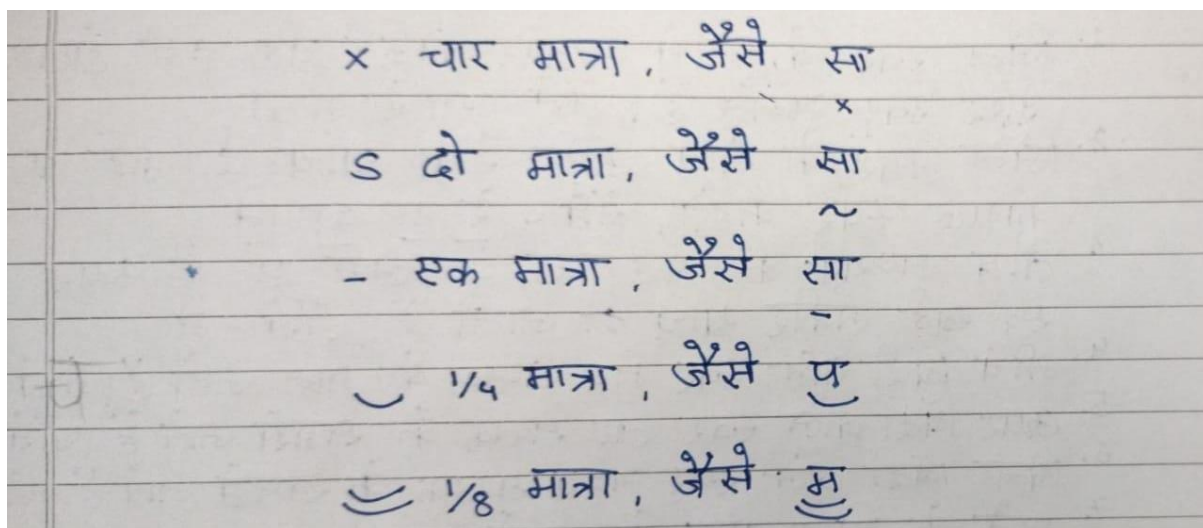 × चार मात्रा, जैसे सा
×
S दो मात्रा, जैसे सा
~
- एक मात्रा, जैसे सा
-
‿ 1/4 मात्रा, जैसे प
‿
1/8 मात्रा, जैसे म